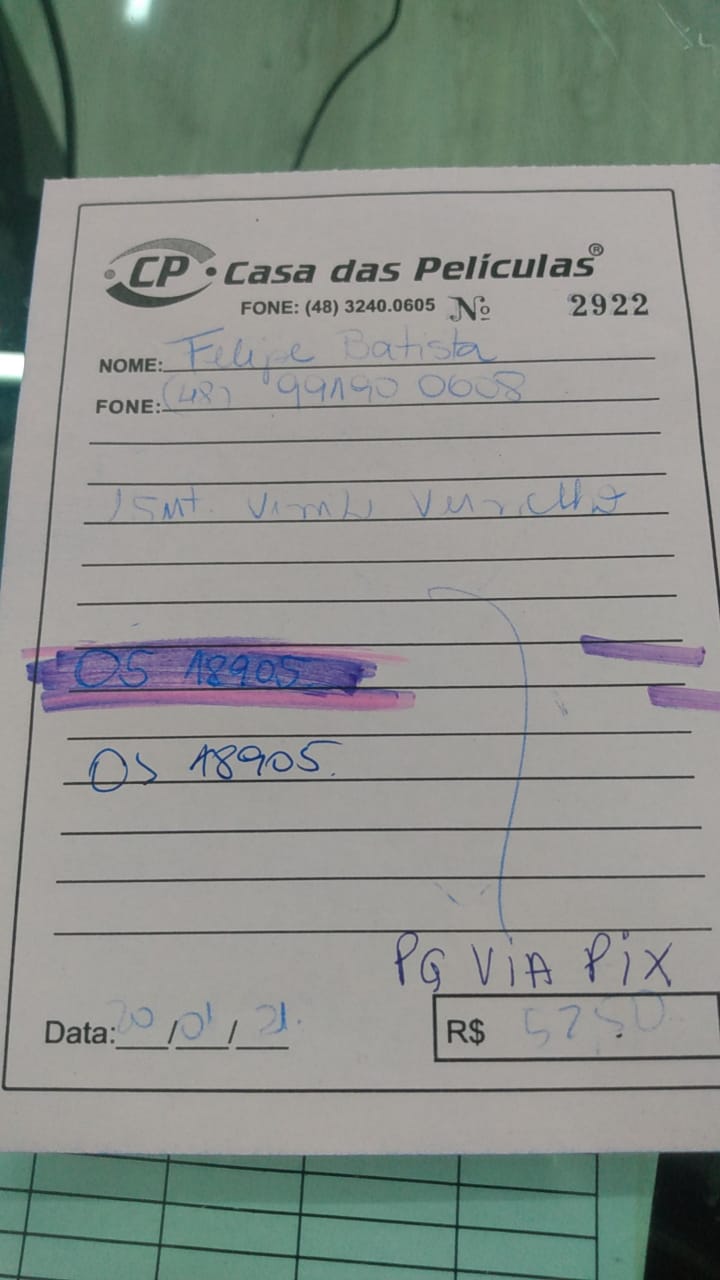 CP Casa das Películas®
FONE: (48) 3240.0605 Nº 2922
NOME: Felipe Batista
FONE: (48) 99190 0608
15mt. Vinil Vermelho
OS 18905
OS 18905.
PG VIA PIX
Data: 20/01/21.
R$ 52,50